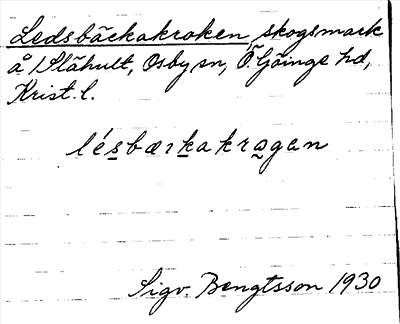 Ledsbäckakroken, skogsmark
å Slähult, Osby sn, Ö. Göinge hd,
Krist. l.
lésbæıkakrǫgan
Sigv. Bengtsson 1930